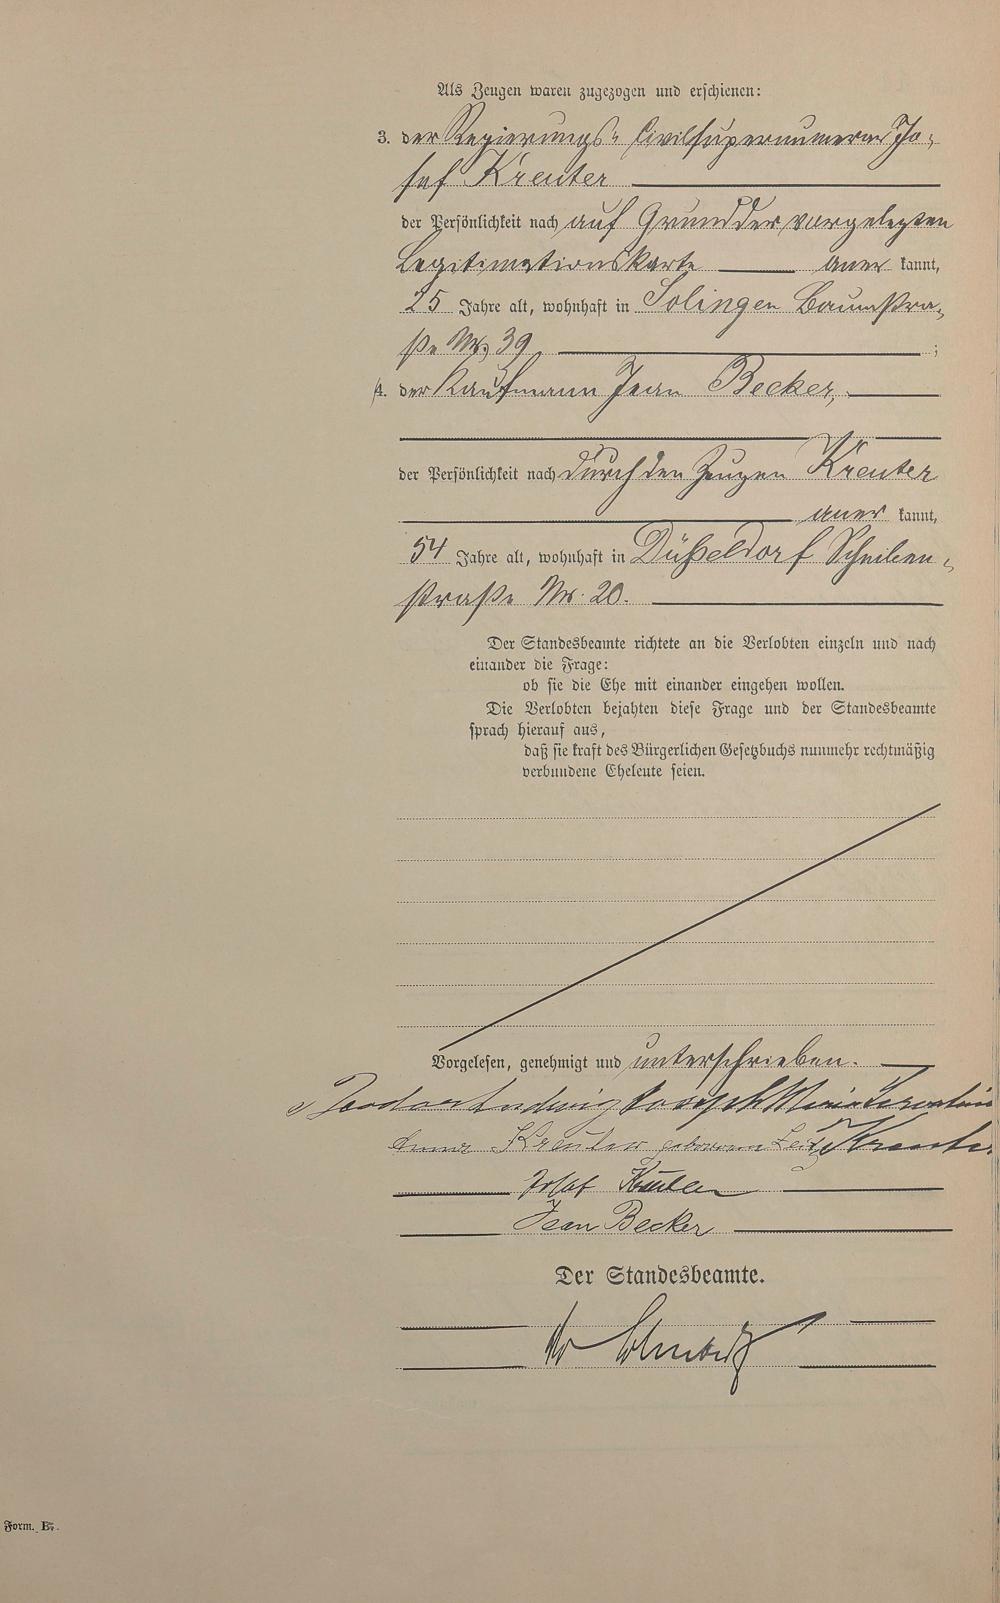 Als Zeugen waren zugezogen und erschienen:
3. der Regierungs-Civilsupernumerar Jo-
sef Kreuter
der Persönlichkeit nach auf Grund der vorgelegten
Legitimationskarte aner kannt,
25 Jahre alt, wohnhaft in Solingen Baumstra-
ße Nr. 39 ;
4. der Kaufmann Jean Becker,
der Persönlichkeit nach durch den Zeugen Kreuter
aner kannt,
54 Jahre alt, wohnhaft in Düßeldorf Scheiben-
straße Nr. 20.
Der Standesbeamte richtete an die Verlobten einzeln und nach
einander die Frage:
ob sie die Ehe mit einander eingehen wollen.
Die Verlobten bejahten diese Frage und der Standesbeamte
sprach hierauf aus,
daß sie kraft des Bürgerlichen Gesetzbuchs nunmehr rechtmäßig
verbundene Eheleute seien.
Vorgelesen, genehmigt und unterschrieben.
Ludwig Joseph Maria
Anna Kreuter geborene Kreuter
Josef Kreuter
Jean Becker
Der Standesbeamte.
Form. B.